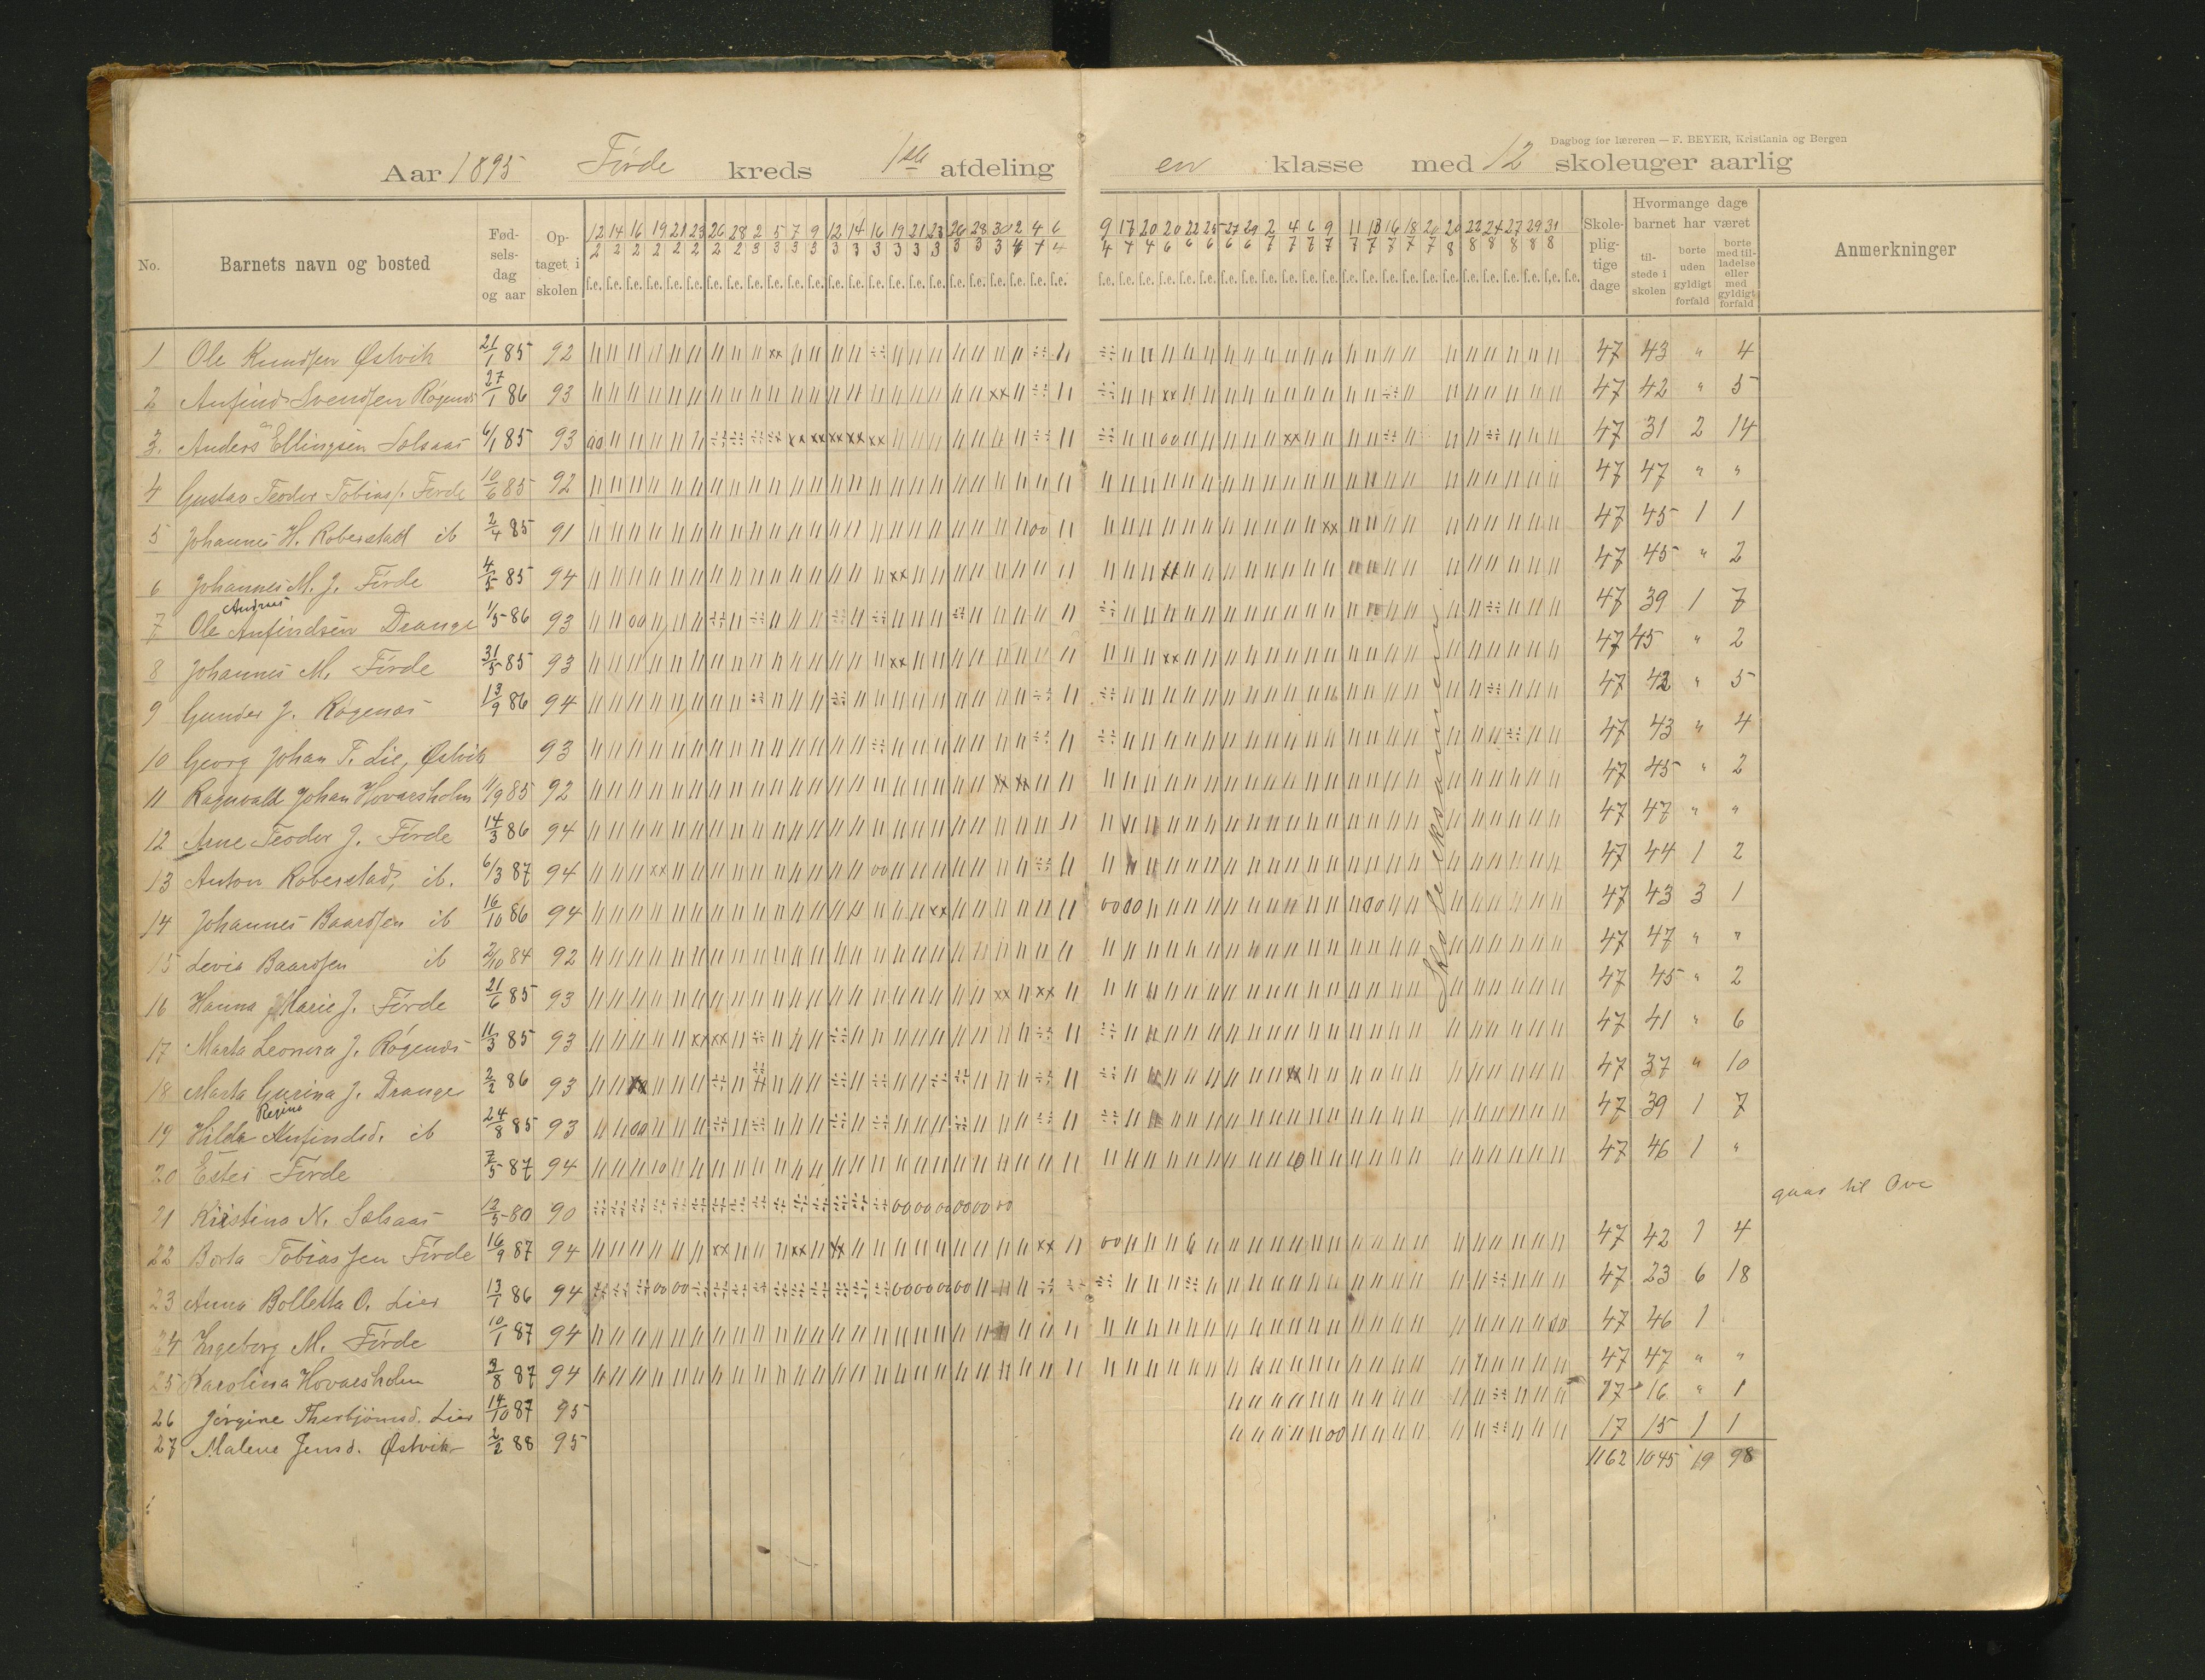 Dagbog for læreren — F. BEYER, Kristiania og Bergen
Aar 1895 Førde kreds 1ste afdeling en klasse med 12 skoleuger aarlig
No. Barnets navn og bosted Fødselsdag og aar Optaget i skolen Skolepligtige dage Hvormange dage barnet har været tilstede i skolen borte uden gyldigt forfald borte med tilladelse eller med gyldigt forfald Anmerkninger
12/2 14/2 16/2 19/2 21/2 23/2 26/2 28/2 2/3 5/3 7/3 9/3 12/3 14/3 16/3 19/3 21/3 23/3 26/3 28/3 30/3 2/4 4/4 6/4 9/4 17/4 20/4 20/6 22/6 25/6 27/6 29/6 2/7 4/7 6/7 9/7 11/7 13/7 16/7 18/7 20/7 20/8 22/8 24/8 27/8 29/8 31/8
1 Ole Knudsen Østvik 21/1 85 92 47 43 " 4
2 Anfind Svendsen Røgenes 27/1 86 93 47 42 " 5
3. Anders Ellingsen Solsaas 6/1 85 93 47 31 2 14
4 Gustav Teodor Tobiass. Førde 10/6 85 92 47 47 " "
5 Johannes H. Roberstad ib 2/4 85 91 47 45 1 1
6 Johannes M. J. Førde 4/5 85 94 47 45 " 2
Andreas
7 Ole Anfindsen Drange 1/5 86 93 47 39 1 7
8 Johannes M. Førde 31/5 85 93 47 45 " 2
9 Gunder J. Røgenæs 13/9 86 94 47 42 " 5
10 Georg Johan T. Lie, Østvik 93 47 43 " 4
11 Ragnvald Johan Hovarsholm 11/9 85 92 47 45 " 2
12 Arne Teodor J. Førde 14/3 86 94 47 47 " "
13 Anton Roberstad, ib. 6/3 87 94 47 44 1 2
14 Johannes Baardsen ib 16/10 86 94 47 43 3 1
15 Levia Baardsen ib 2/10 84 92 47 47 " "
16 Hanna Marie J. Førde 21/6 85 93 47 45 " 2
17 Marta Leonora J. Røgenæs 11/3 85 93 47 41 " 6
18 Marta Gurina J. Drange 2/2 86 93 47 37 " 10
Regina
19 Hilda Anfindsd. ib 24/8 85 93 47 39 1 7
20 Ester Førde 7/5 87 94 47 46 1 "
21 Kristina N. Solsaas 12/5 80 90 gaar til Ove
22 Borta Tobiassen Førde 16/9 87 94 47 42 1 4
23 Anna Bolletta O. Lier 13/1 86 94 47 23 6 18
24 Ingeborg M. Førde 10/1 87 94 47 46 1
25 Karolina Hovarsholm 3/8 87 94 47 47 " "
26 Jørgine Thorbjørnsd. Lier 14/10 87 95 17 16 " 1
27 Malene Jensd. Østvik 2/2 88 95 17 15 1 1
1162 1045 19 98
Skoleeksamen